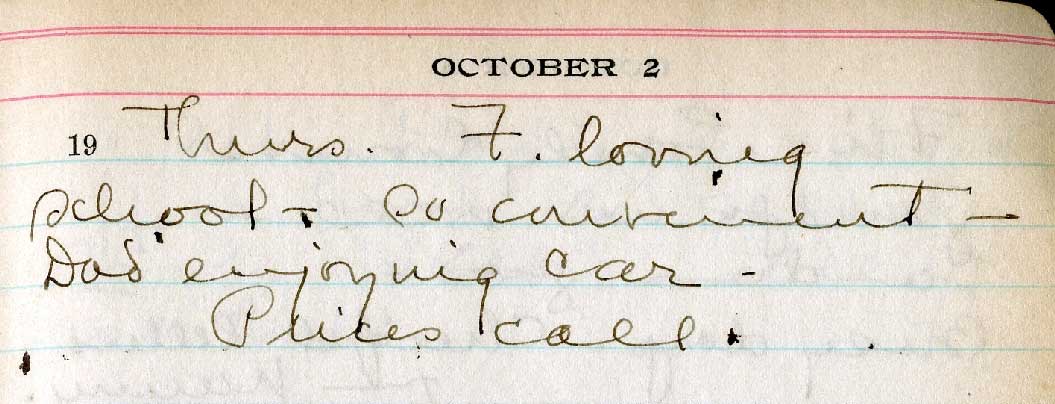 OCTOBER 2
19 Thurs. F. loving
school - so convenient -
Dad enjoying car -
Prices call.